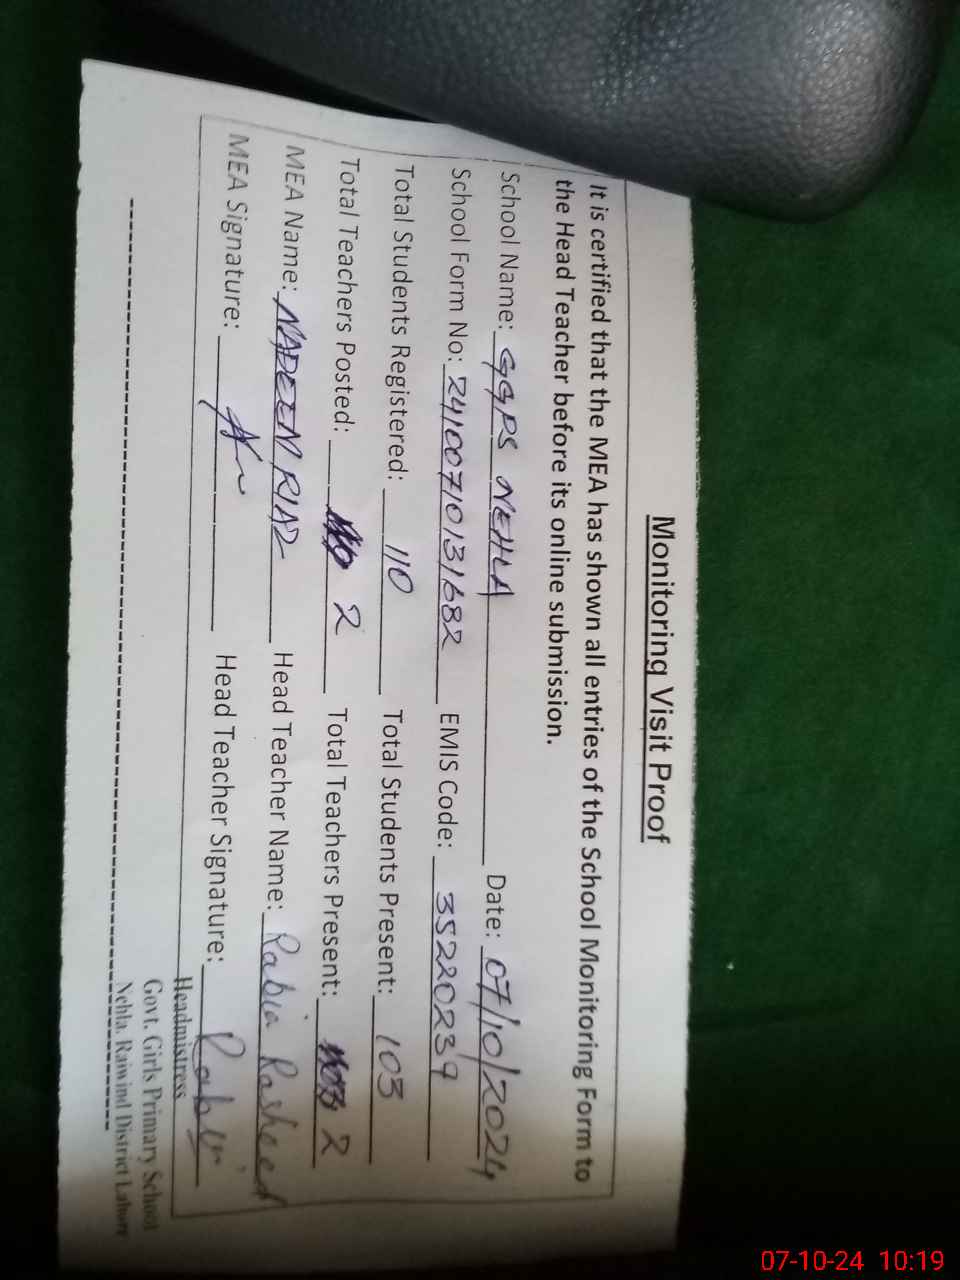 Monitoring Visit Proof
It is certified that the MEA has shown all entries of the School Monitoring Form to
the Head Teacher before its online submission.
School Name: GGPS NEHLA Date: 07/10/2024
School Form No: 24100710131682 EMIS Code: 35220239
Total Students Registered: 110 Total Students Present: 103
Total Teachers Posted: 2 Total Teachers Present: 2
MEA Name: NADEEM RIAZ Head Teacher Name: Rabia Rasheed
MEA Signature: Head Teacher Signature: Rabia
Headmistress
Govt. Girls Primary School
Nehla, Raiwind District Lahore
07-10-24 10:19